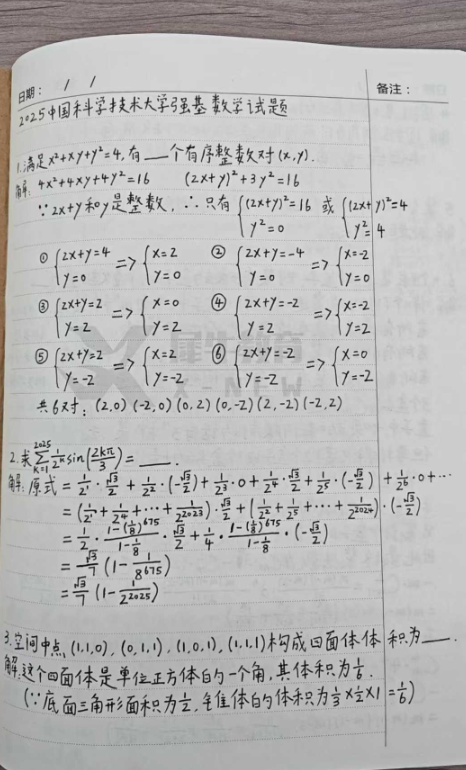 日期: / /
备注:
2025中国科学技术大学强基数学试题
1.满足x²+xy+y²=4,有___个有序整数对(x,y).
解: 4x²+4xy+4y²=16 (2x+y)²+3y²=16
∵2x+y和y是整数,∴只有{(2x+y)²=16 y²=0 或{(2x+y)²=4 y²=4
①{2x+y=4 y=0 =>{x=2 y=0 ②{2x+y=-4 y=0 =>{x=-2 y=0
③{2x+y=2 y=2 =>{x=0 y=2 ④{2x+y=-2 y=2 =>{x=-2 y=2
⑤{2x+y=2 y=-2 =>{x=2 y=-2 ⑥{2x+y=-2 y=-2 =>{x=0 y=-2
共6对: (2,0) (-2,0) (0,2) (0,-2) (2,-2) (-2,2)
2.求∑_{k=1}^{2025} 1/2^k sin(2kπ/3)=___.
解:原式=1/2¹·√3/2+1/2²·(-√3/2)+1/2³·0+1/2⁴·√3/2+1/2⁵·(-√3/2)+1/2⁶·0+⋯
=(1/2¹+1/2⁴+⋯+1/2^2023)·√3/2+(1/2²+1/2⁵+⋯+1/2^2024)·(-√3/2)
=1/2·(1-(1/8)^675)/(1-1/8)·√3/2+1/4·(1-(1/8)^675)/(1-1/8)·(-√3/2)
=√3/7(1-1/8^675)
=√3/7(1-1/2^2025)
3.空间中点(1,1,0),(0,1,1),(1,0,1),(1,1,1)构成四面体体积为___.
解:这个四面体是单位正方体的一个角,其体积为1/6.
(∵底面三角形面积为1/2,锥体的体积为1/3×1/2×1=1/6)